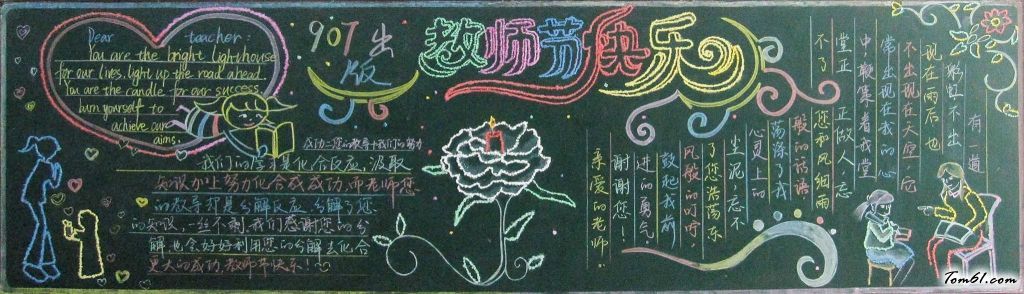 Dear teacher:
You are the bright lighthouse
for our lives, light up the road ahead.
You are the candle for our success,
burn yourself to
achieve our
aims.
907出
版
教师节快乐
成功=您的教导+我们的努力
我们的学习是化合反应,汲取
知识加上努力化合成成功,而老师您
的教导却是分解反应,分解了您
的知识,一丝不剩,我们感谢您的分
解,也会好好利用您的分解去化合
更大的成功,教师节快乐!
有一道
彩虹不出
现在雨后,也
不出现在天空,它
常出现在我的心
中,鞭策着我堂
堂正正做人,忘
不了您和风细雨
般的话语
荡涤了我
心灵上的
尘泥,忘不
了您浩荡东
风般的叮咛,
鼓起我前
进的勇气。
谢谢您!
亲爱的老师
Tom61.com